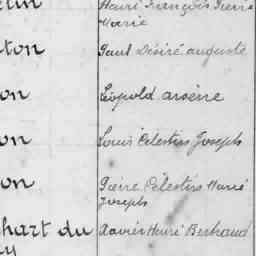 Henri François Pierre
Marie
ton Paul Désiré auguste
on Léopold arsène
on Louis Célestin Joseph
on Pierre Célestin Marie
Joseph
hart du Xavier Henri Bertrand